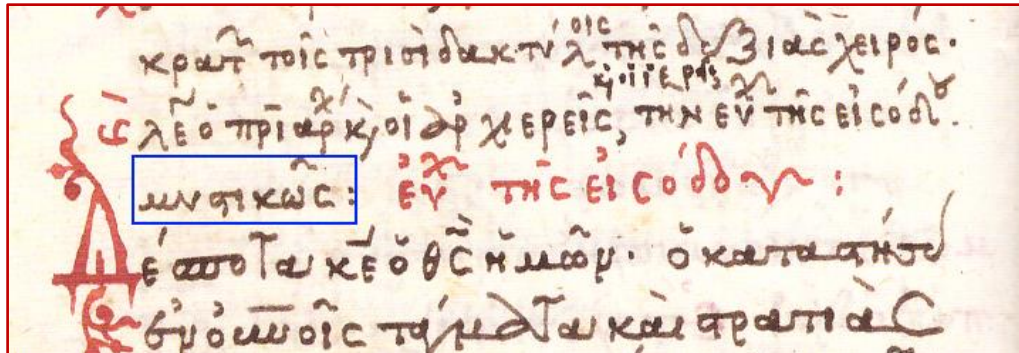 κρατ τοῖς τρισὶ δακτύλοις τῆς δεξιᾶς χειρός·
λέγει ὁ πριάρχ καὶ οἱ ἀρχιερεῖς, καὶ οἱ ἱερεῖς τὴν εὐχ τῆς εἰσόδου.
μυστικῶς: εὐχ τῆς εἰσόδου:
Δέσποτα κε ὁ θς ἡμῶν· ὁ καταστήσ
οὐνοῖς τάγματα καὶ στρατιὰς